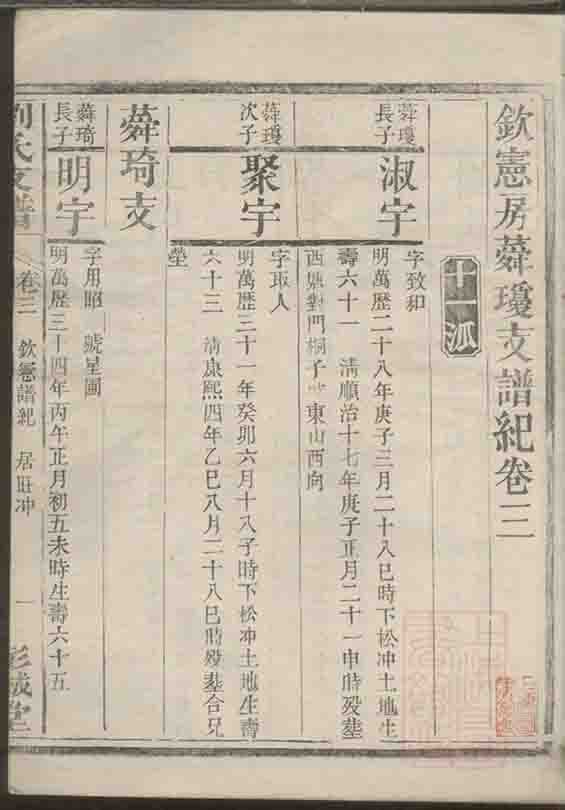 欽憲房蕣瓊支譜紀卷三
十一派
蕣瓊
長子
淑宇
字致和
明萬歷二十八年庚子三月二十八巳時下松冲土地生
壽六十一 清順治十七年庚子正月二十一申時歿墓
西嶽對門桐子 東山西向
蕣瓊
次子
聚宇
字取人
明萬歷三十一年癸卯六月十八子時下松冲土地生壽
六十三 清康熙四年乙巳八月二十八巳時歿墓合兄
塋
蕣琦支
蕣琦
長子
明宇
字用昭 號星圃
明萬歷三十四年丙午正月初五未時生壽六十五
劉氏支譜
卷三
欽憲譜紀 居旺冲
一
彭城堂